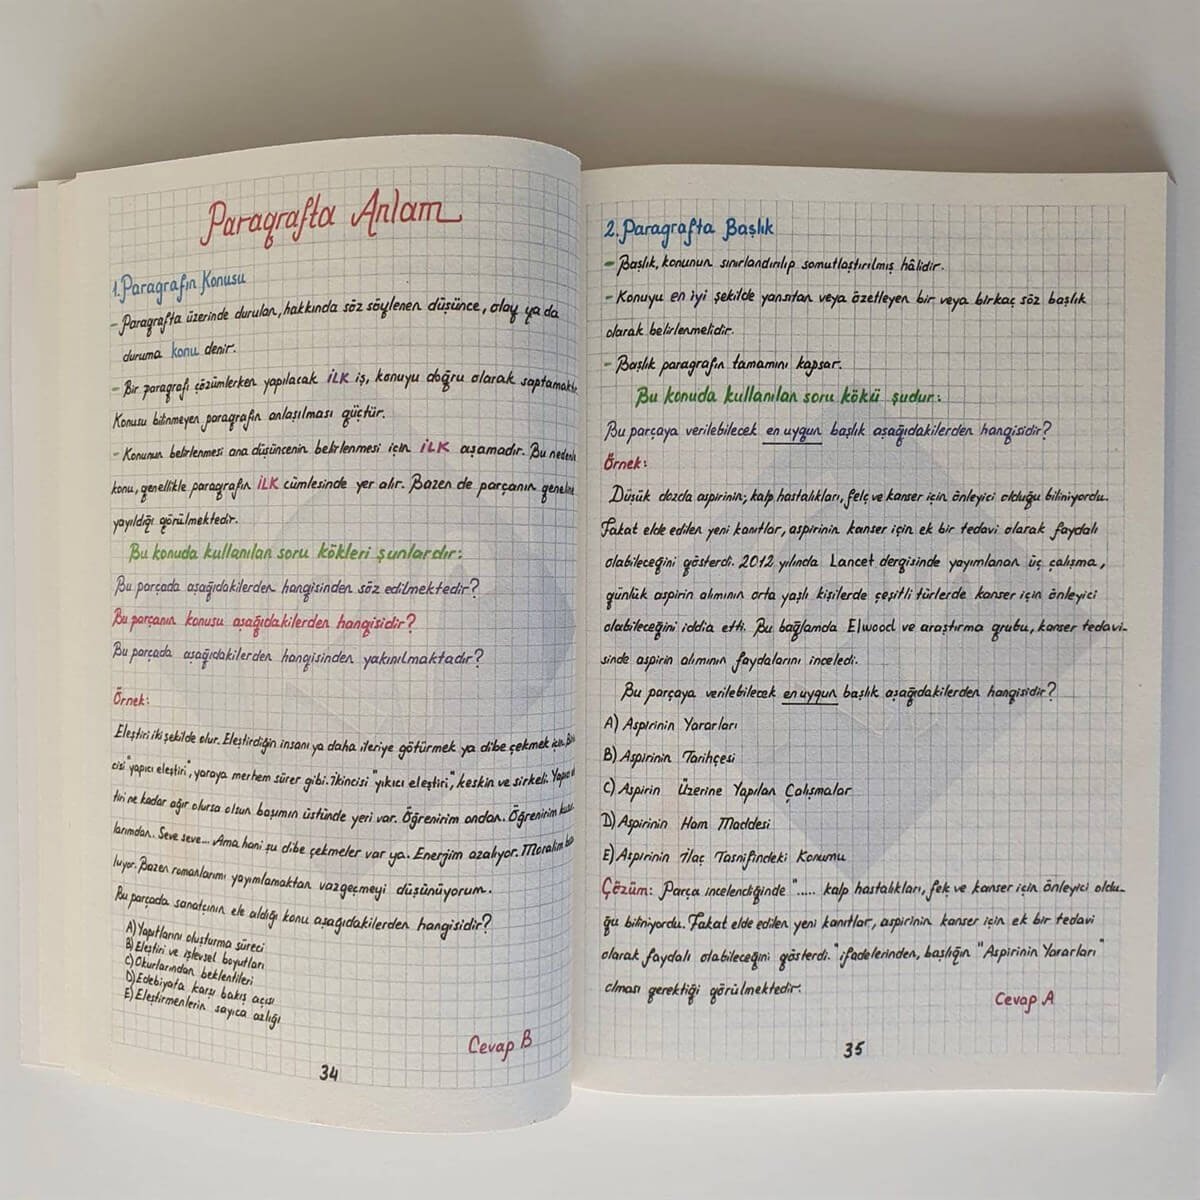 Paragrafta Anlam
1.Paragrafın Konusu
- Paragrafta üzerinde durulan, hakkında söz söylenen düşünce, olay ya da
duruma konu denir.
- Bir paragrafı çözümlerken yapılacak İLK iş, konuyu doğru olarak saptamaktır.
Konusu bilinmeyen paragrafın anlaşılması güçtür.
- Konunun belirlenmesi ana düşüncenin belirlenmesi için İLK aşamadır. Bu nedenle
konu, genellikle paragrafın İLK cümlesinde yer alır. Bazen de parçanın geneline
yayıldığı görülmektedir.
Bu konuda kullanılan soru kökleri şunlardır:
Bu parçada aşağıdakilerden hangisinden söz edilmektedir?
Bu parçanın konusu aşağıdakilerden hangisidir?
Bu parçada aşağıdakilerden hangisinden yakınılmaktadır?
Örnek:
Eleştiri iki şekilde olur. Eleştirdiğin insanı ya daha ileriye götürmek ya dibe çekmek için.
cisi "yapıcı eleştiri", yaraya merhem sürer gibi. İkincisi "yıkıcı eleştiri", keskin ve sirkeli.
tiri ne kadar ağır olursa olsun başımın üstünde yeri var. Öğrenirim ondan. Öğrenirim
larımdan. Seve seve... Ama hani şu dibe çekmeler var ya. Enerjim azalıyor. Moralim
luyor. Bazen romanlarımı yayımlamaktan vazgeçmeyi düşünüyorum.
Bu parçada sanatçının ele aldığı konu aşağıdakilerden hangisidir?
A) Yapıtlarını oluşturma süreci
B) Eleştiri ve işlevsel boyutları
C) Okurlarından beklentileri
D) Edebiyata karşı bakış açısı
E) Eleştirmenlerin sayıca azlığı
Cevap B
34
2. Paragrafta Başlık
- Başlık, konunun sınırlandırılıp somutlaştırılmış hâlidir.
- Konuyu en iyi şekilde yansıtan veya özetleyen bir veya birkaç söz başlık
olarak belirlenmelidir.
- Başlık paragrafın tamamını kapsar.
Bu konuda kullanılan soru kökü şudur:
Bu parçaya verilebilecek en uygun başlık aşağıdakilerden hangisidir?
Örnek:
Düşük dozda aspirinin; kalp hastalıkları, felç ve kanser için önleyici olduğu biliniyordu.
Fakat elde edilen yeni kanıtlar, aspirinin kanser için ek bir tedavi olarak faydalı
olabileceğini gösterdi. 2012 yılında Lancet dergisinde yayımlanan üç çalışma,
günlük aspirin alımının orta yaşlı kişilerde çeşitli türlerde kanser için önleyici
olabileceğini iddia etti. Bu bağlamda Elwood ve araştırma grubu, kanser tedavi-
sinde aspirin alımının faydalarını inceledi.
Bu parçaya verilebilecek en uygun başlık aşağıdakilerden hangisidir?
A) Aspirinin Yararları
B) Aspirinin Tarihçesi
C) Aspirin Üzerine Yapılan Çalışmalar
D) Aspirinin Ham Maddesi
E) Aspirinin İlaç Tasnifindeki Konumu
Çözüm: Parça incelendiğinde "..... kalp hastalıkları, felç ve kanser için önleyici oldu-
ğu biliniyordu. Fakat elde edilen yeni kanıtlar, aspirinin kanser için ek bir tedavi
olarak faydalı olabileceğini gösterdi." ifadelerinden, başlığın "Aspirinin Yararları"
olması gerektiği görülmektedir.
Cevap A
35